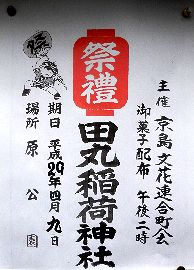 主催 京島文花連合町会
御菓子配布 午後二時
祭禮
田丸稲荷神社
期日 平成29年四月九日
場所 原公園